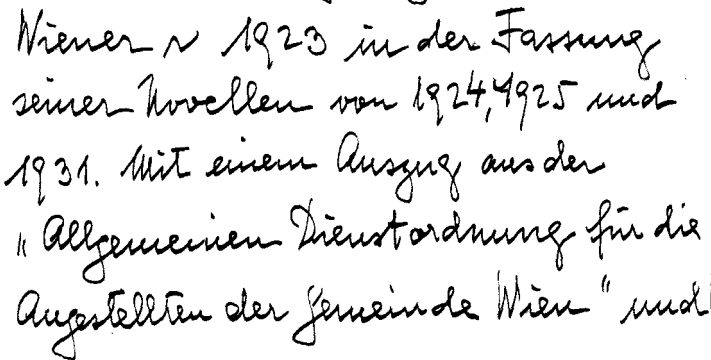 Wiener v 1923 in der Fassung
seiner Novellen von 1924, 1925 und
1931. Mit einem Auszug aus der
"Allgemeinen Dienstordnung für die
Angestellten der Gemeinde Wien" und